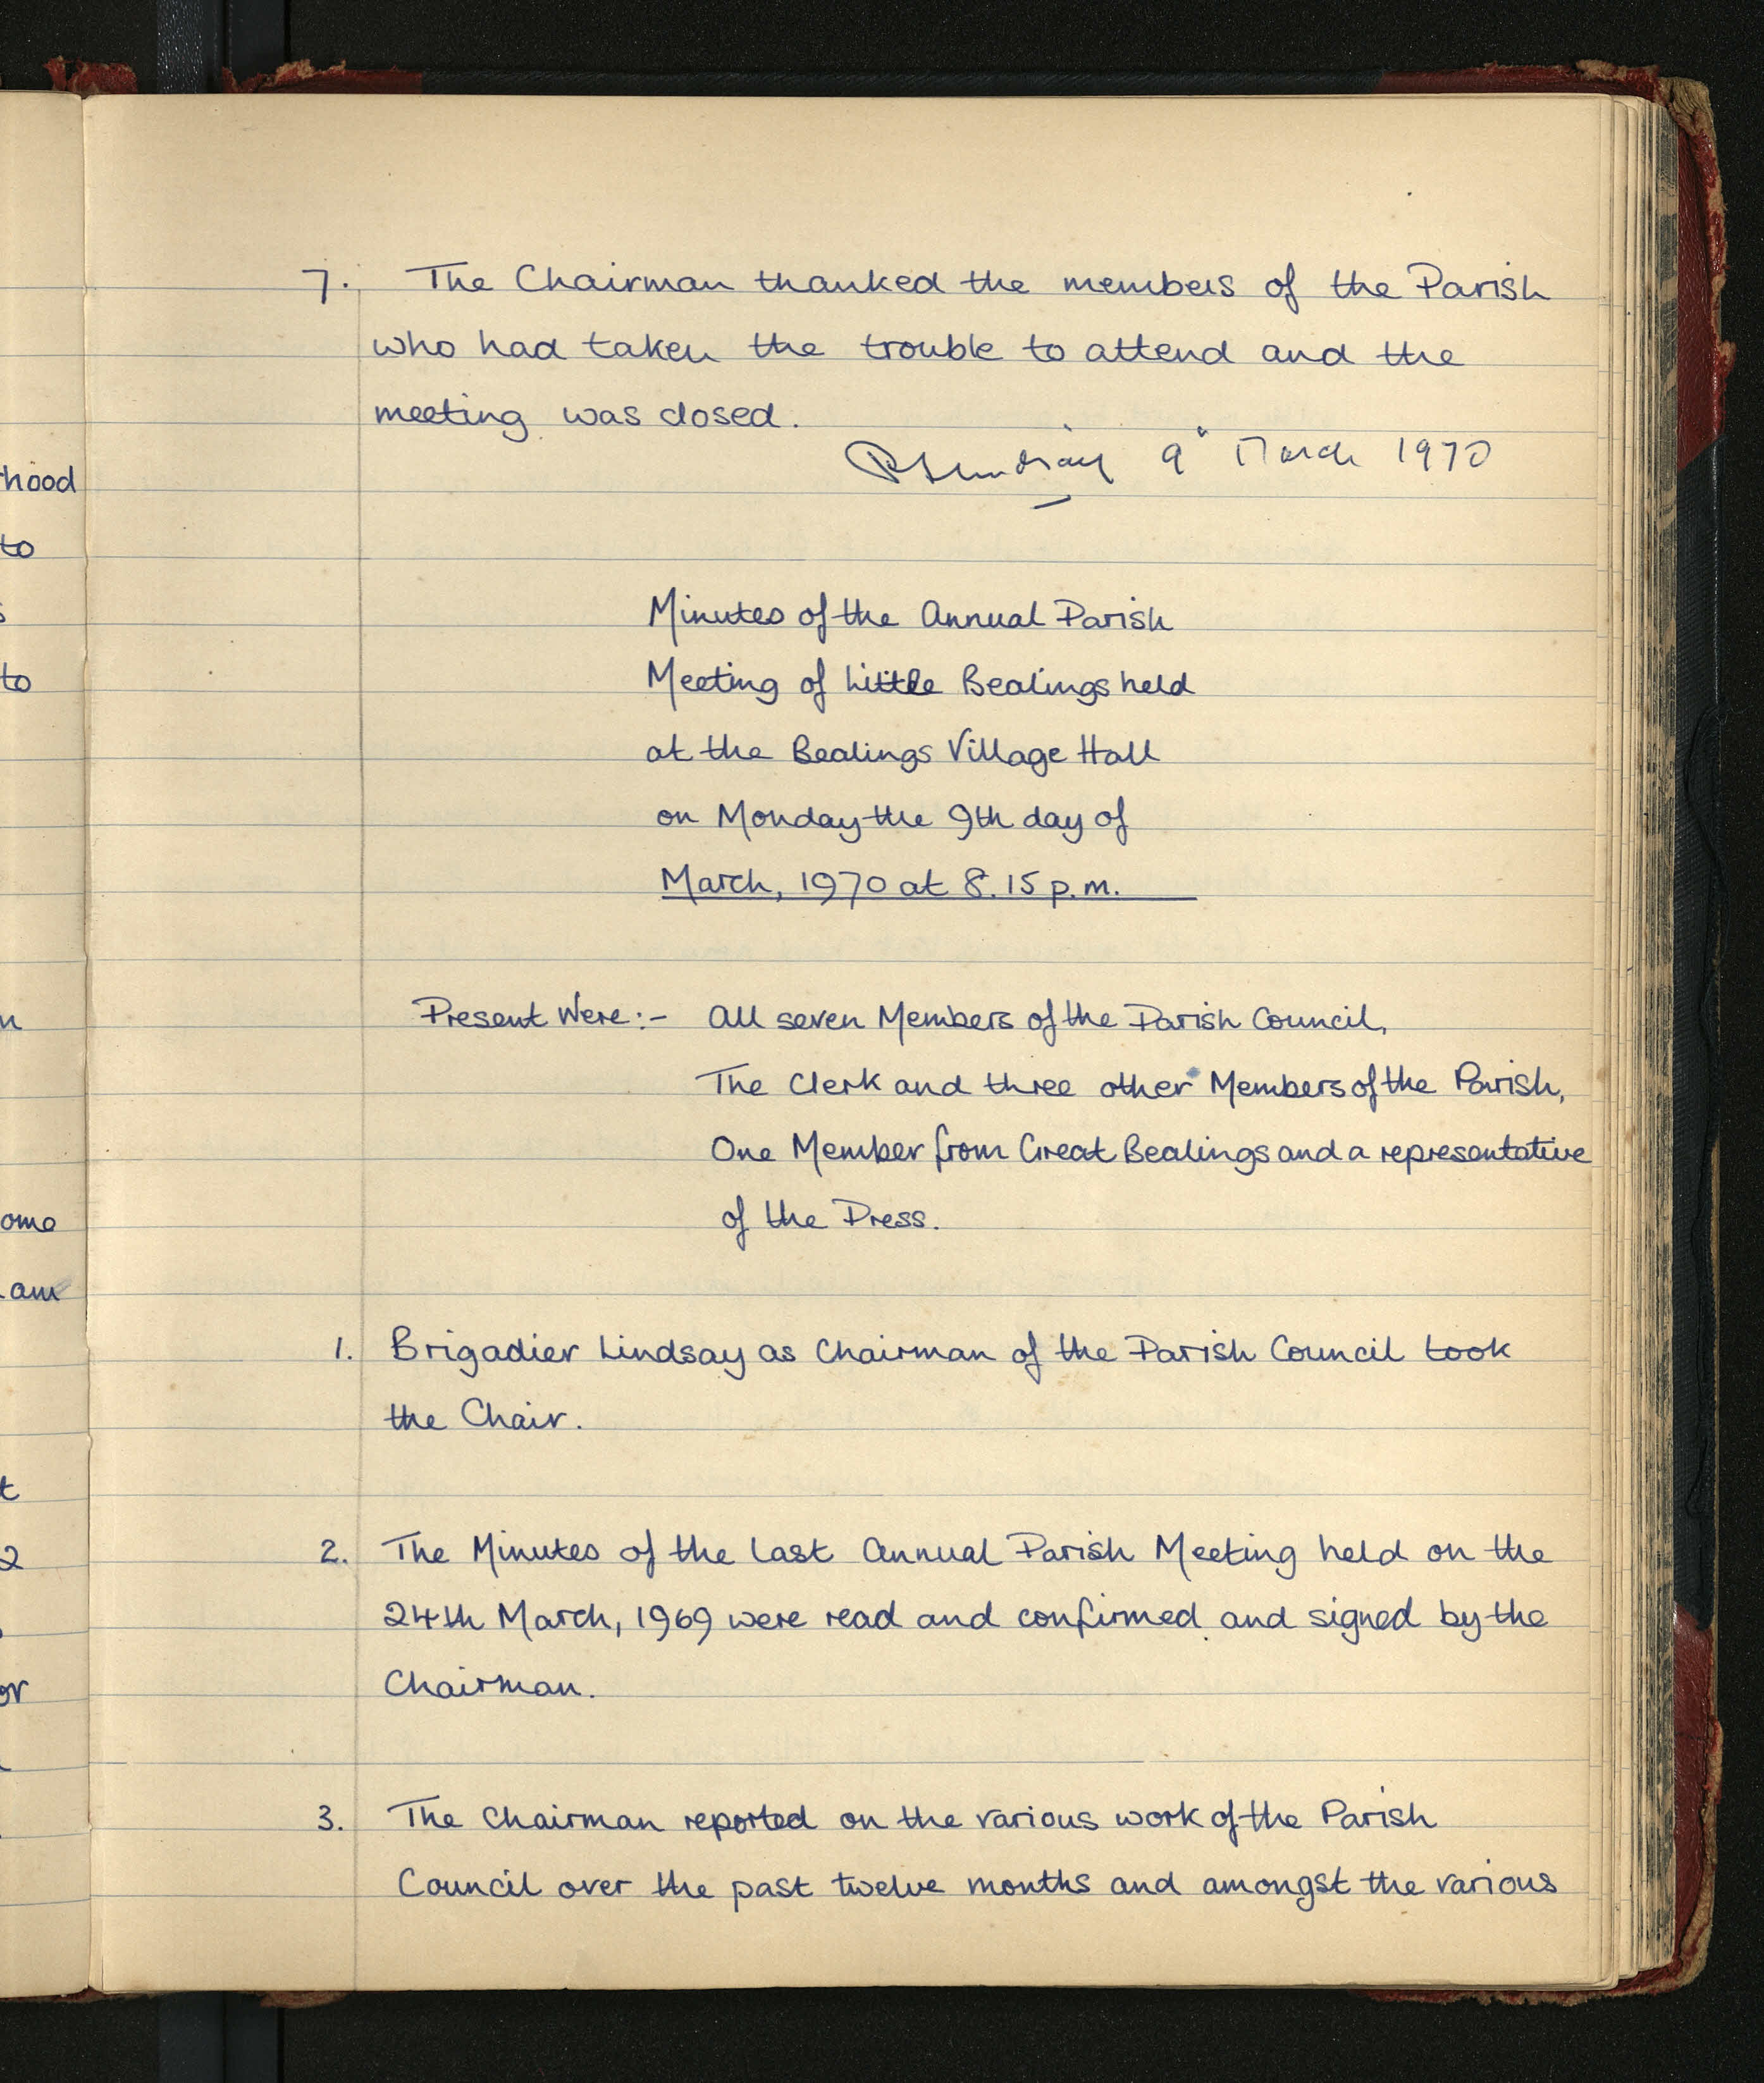 7. The Chairman thanked the members of the Parish
who had taken the trouble to attend and the
meeting was closed.
9" March 1970
Minutes of the Annual Parish
Meeting of Little Bealings held
at the Bealings Village Hall
on Monday the 9th day of
March, 1970 at 8.15 p.m.
Present Were:- All seven Members of the Parish Council,
The Clerk and three other Members of the Parish,
One Member from Great Bealings and a representative
of the Press.
1. Brigadier Lindsay as Chairman of the Parish Council took
the Chair.
2. The Minutes of the last Annual Parish Meeting held on the
24th March, 1969 were read and confirmed and signed by the
Chairman.
3. The Chairman reported on the various work of the Parish
Council over the past twelve months and amongst the various